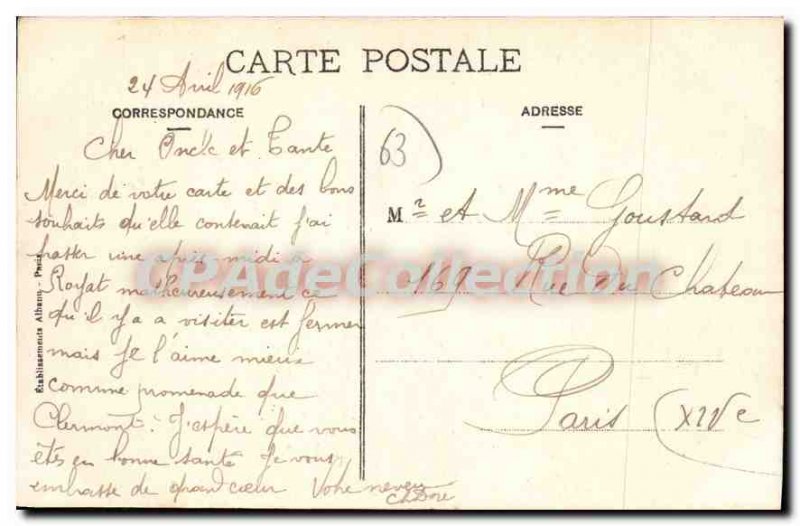 CARTE POSTALE
24 Avril 1916
CORRESPONDANCE
Cher Oncle et Tante
Merci de votre carte et des bons
souhaits qu'elle contenait j'ai
passer une après midi a
Royat malheureusement ce
qu'il y a a visiter est fermer
mais je l'aime mieux
comme promenade que
Clermont. J'espère que vous
êtes en bonne santé Je vous
embrasse de grand cœur Votre neveu
ADRESSE
63
Mr et Mme Goustard
169 Rue du Chateau
Paris (XIVe
Établissements Althann - Paris
CPADeCollection